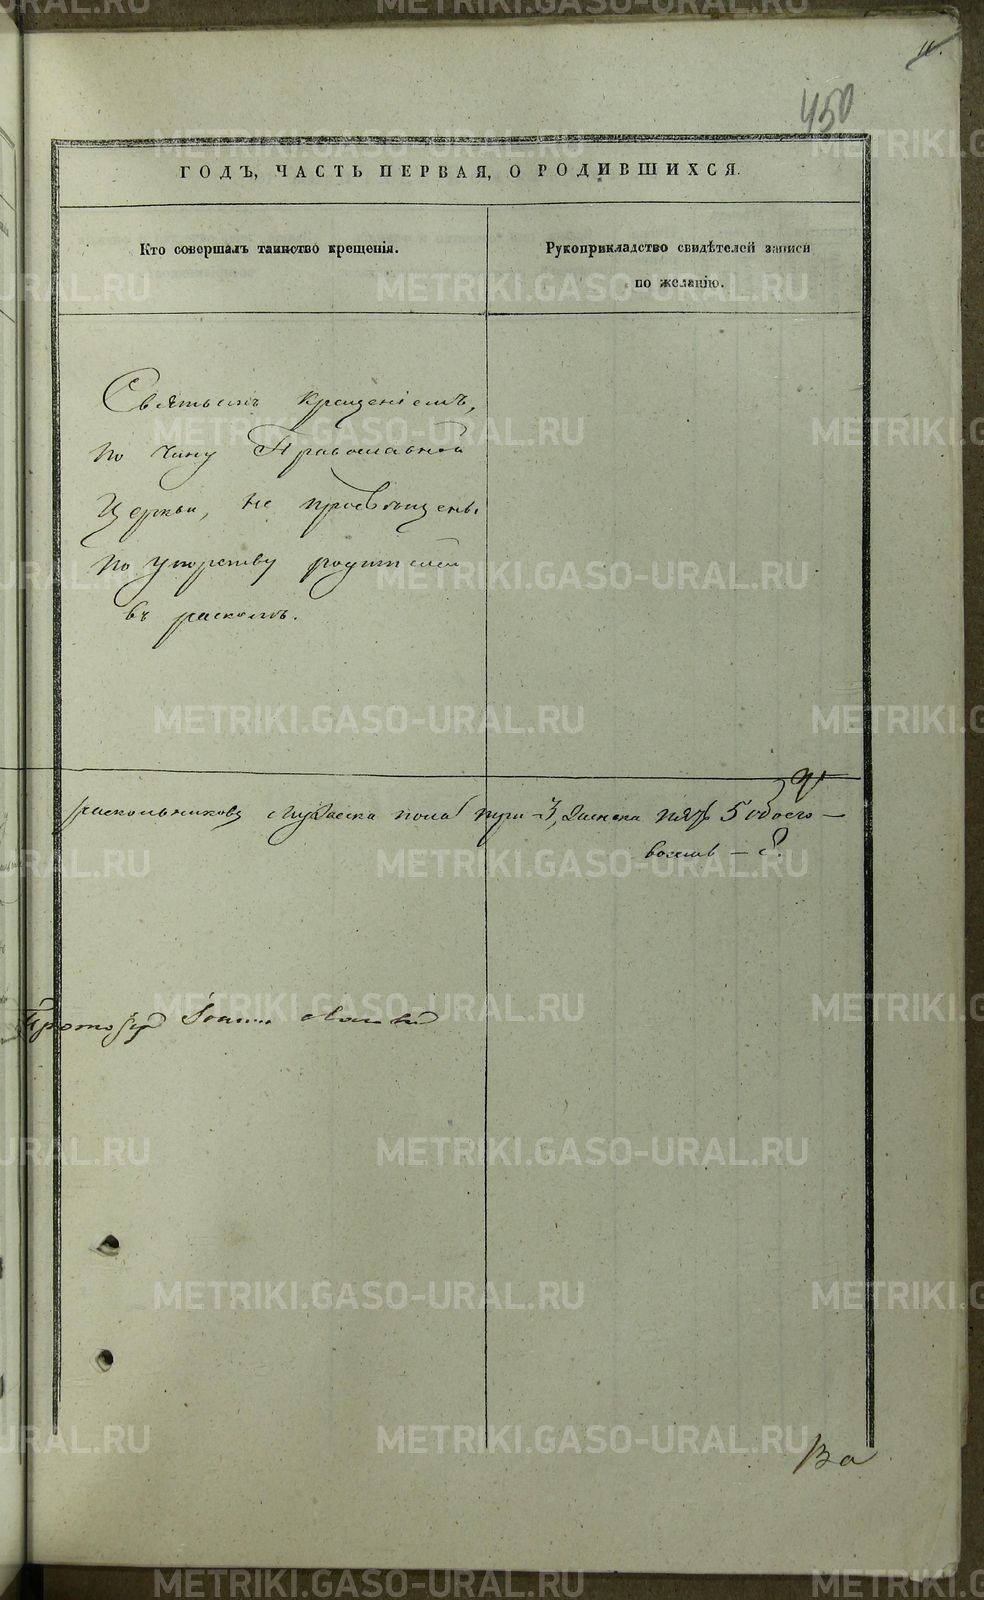 11.
450
ГОДЪ, ЧАСТЬ ПЕРВАЯ, О РОДИВШИХСЯ.
Кто совершалъ таинство крещенія.
Рукоприкладство свидѣтелей записи
по желанію.
Святымъ крещеніемъ,
по чину Православной
Церкви, не просвѣщены
по упорству родителей
въ расколѣ.
раскольниковъ мужеска пола три - 3, женска пять 5 обоего —
восемь — 8.
Протоіерей Іоаннъ
METRIKI.GASO-URAL.RU